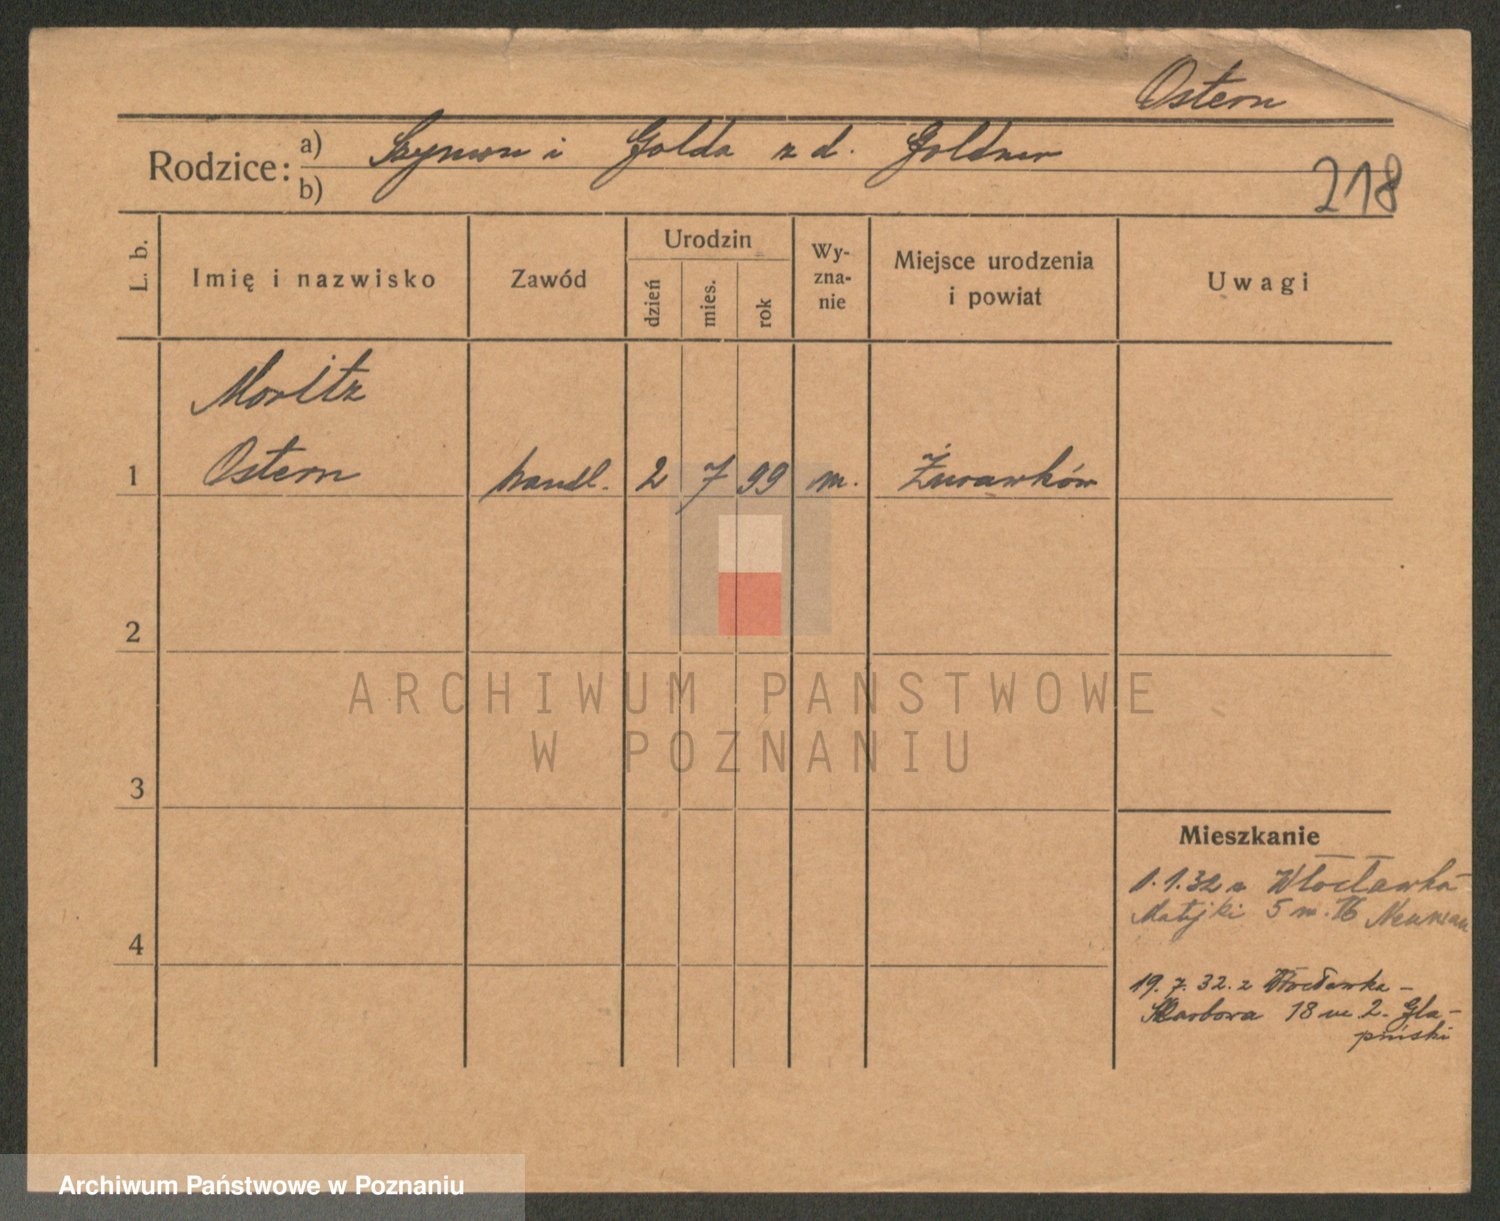 Ostern
Rodzice: a) Szymon i Golda z d. Goldner
b)
218
L. b.
Imię i nazwisko
Zawód
Urodzin
dzień
mies.
rok
Wy-
zna-
nie
Miejsce urodzenia
i powiat
Uwagi
Moritz
1 Ostern handl. 2 7 99 m. Żurawków
2
ARCHIWUM PAŃSTWOWE
W POZNANIU
3
Mieszkanie
1.1.32 z Włocławka
Matejki 5 m. 16 Neuman
4
19.7.32. z Włocławka –
Skarbowa 18 m 2. Gla-
piński
Archiwum Państwowe w Poznaniu